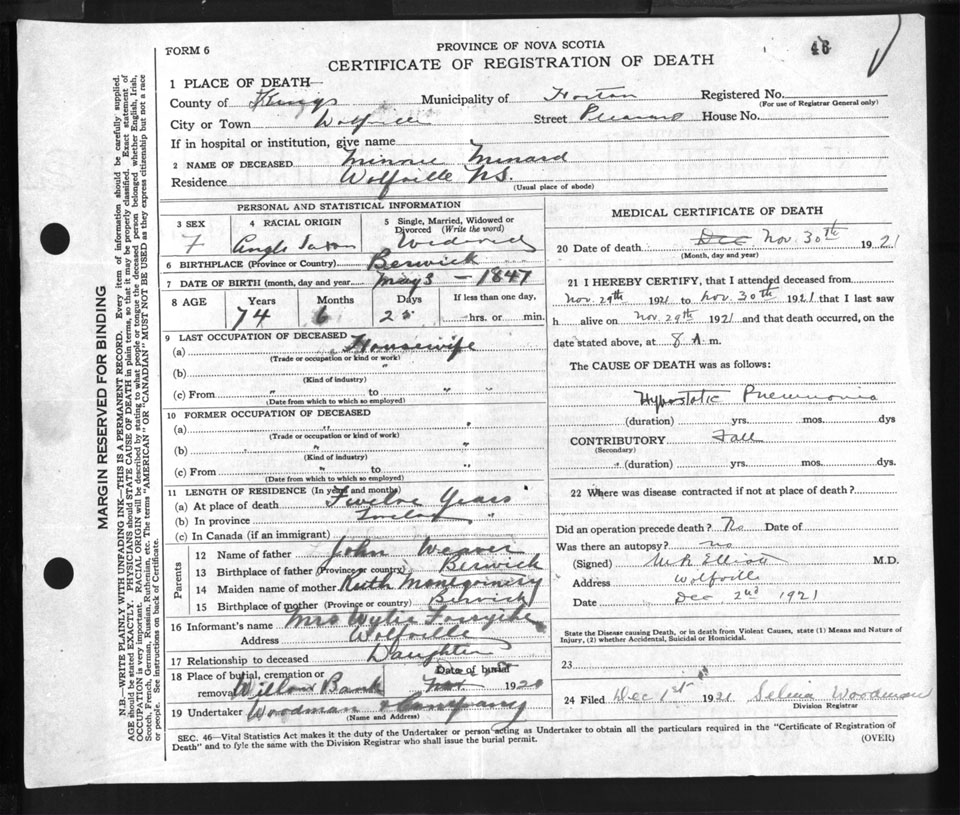 46
PROVINCE OF NOVA SCOTIA
FORM 6
CERTIFICATE OF REGISTRATION OF DEATH
1 PLACE OF DEATH—
County of Kings Municipality of Horton Registered No.
(For use of Registrar General only)
City or Town Wolfville Street Pleasant House No.
If in hospital or institution, give name
2 NAME OF DECEASED Minnie Minard
Residence Wolfville N.S.
(Usual place of abode)
PERSONAL AND STATISTICAL INFORMATION
3 SEX 4 RACIAL ORIGIN 5 Single, Married, Widowed or Divorced (Write the word)
F Anglo Saxon Widowed
6 BIRTHPLACE (Province or Country) Berwick
7 DATE OF BIRTH (month, day and year) May 3 — 1847
8 AGE Years Months Days If less than one day,
74 6 hrs. or min.
9 LAST OCCUPATION OF DECEASED
(a) Housewife
(Trade or occupation or kind or work)
(b) "
(Kind of industry)
(c) From " to " "
(Date from which to which so employed)
10 FORMER OCCUPATION OF DECEASED
(a) " "
(Trade or occupation or kind of work)
(b) " "
(Kind of industry)
(c) From " to "
(Date from which to which so employed)
11 LENGTH OF RESIDENCE (In years and months)
(a) At place of death Twelve Years
(b) In province "
(c) In Canada (if an immigrant)
Parents
12 Name of father John Weaver
13 Birthplace of father (Province or country) Berwick
14 Maiden name of mother Ruth Montgomery
15 Birthplace of mother (Province or country) Berwick
16 Informant's name Mrs Wylie Forsythe
Address Wolfville
17 Relationship to deceased Daughter
18 Place of burial, cremation or Date of burial
removal Willow Bank 1920
19 Undertaker Woodman & Company
(Name and Address)
MEDICAL CERTIFICATE OF DEATH
20 Date of death Dec Nov. 30th 1921
(Month, day and year)
21 I HEREBY CERTIFY, that I attended deceased from
Nov. 29th 1921 to Nov. 30th 1921 that I last saw
h alive on Nov. 29th 1921 and that death occurred, on the
date stated above, at 8 A. m.
The CAUSE OF DEATH was as follows:
Hypostatic Pneumonia
(duration) yrs. mos. dys.
CONTRIBUTORY Fall
(Secondary)
" (duration) yrs. mos. dys.
22 Where was disease contracted if not at place of death?
Did an operation precede death? No Date of
Was there an autopsy? no
(Signed) M.R. Elliott M.D.
Address Wolfville
Date Dec 2nd 1921
State the Disease causing Death, or in death from Violent Causes, state (1) Means and Nature of
Injury, (2) whether Accidental, Suicidal or Homicidal.
23
24 Filed Dec 1st 1921 Selina Woodman
Division Registrar
SEC. 46—Vital Statistics Act makes it the duty of the Undertaker or person acting as Undertaker to obtain all the particulars required in the "Certificate of Registration of
Death" and to fyle the same with the Division Registrar who shall issue the burial permit. (OVER)
MARGIN RESERVED FOR BINDING
N.B.—WRITE PLAINLY WITH UNFADING INK—THIS IS A PERMANENT RECORD. Every item of information should be carefully supplied.
AGE should be stated EXACTLY. PHYSICIANS should STATE CAUSE OF DEATH in plain terms, so that it may be properly classified. Exact statement of
OCCUPATION is very important. RACIAL ORIGIN will be described by stating to what people or tongue the deceased person belonged whether English, Irish,
Scotch, French, German, Russian, Ruthenian, etc. The terms "AMERICAN" OR "CANADIAN" MUST NOT BE USED as they express citizenship but not a race
or people. See instructions on back of Certificate.